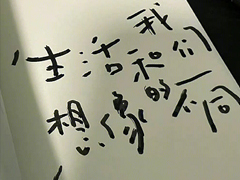 生活和我们
想像的不同